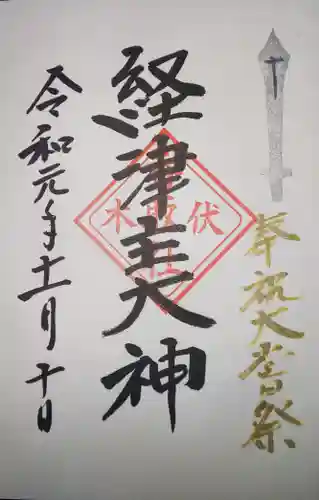 奉祝大嘗祭
経津主大神
伏木
取社
令和元年十一月十日